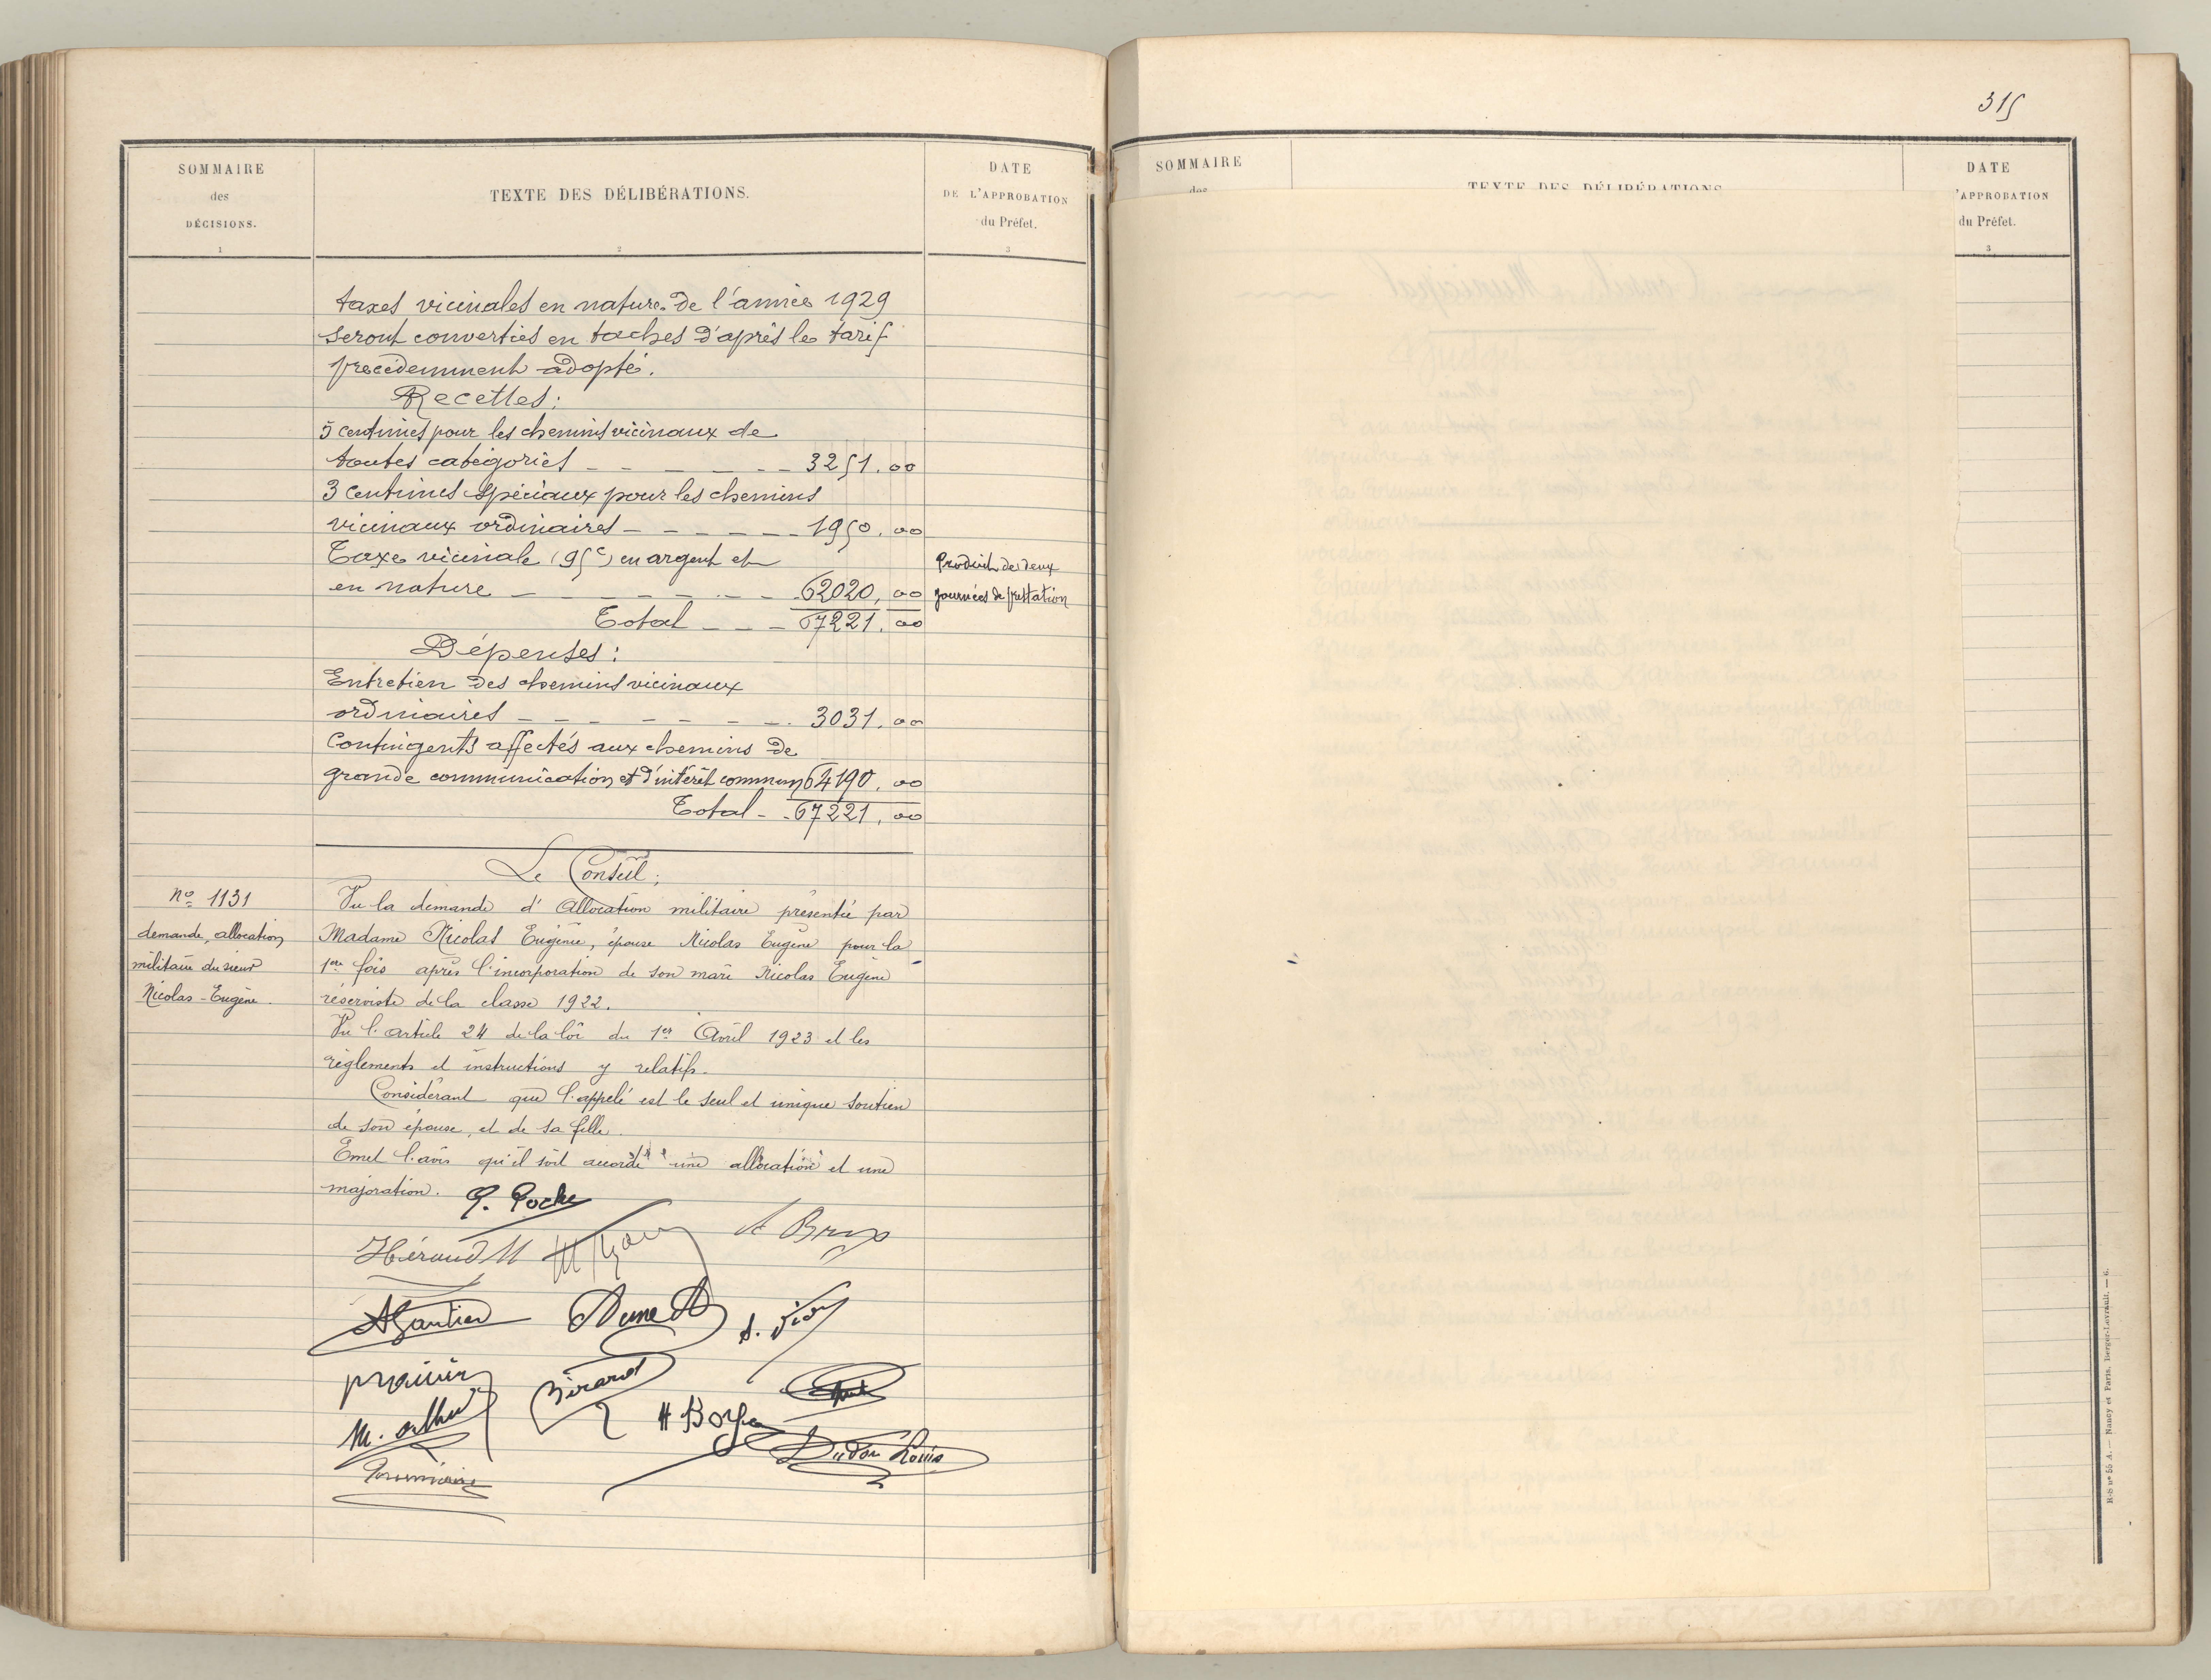 SOMMAIRE
des
DÉCISIONS.
1
TEXTE DES DÉLIBÉRATIONS.
2
DATE
DE L'APPROBATION
du Préfet.
3
taxes vicinales en nature de l'année 1929
seront converties en taches d'après le tarif
precédemment adopté.
Recettes :
5 centimes pour les chemins vicinaux de
toutes catégories _ _ _ _ _ _ 3251.00
3 centimes spéciaux pour les chemins
vicinaux ordinaires _ _ _ _ _ 1950.00
Taxe vicinale (95c) en argent et
en nature _ _ _ _ _ _ 62020,00
Produit de deux
journées de prestation
Total _ _ _ 67221.00
Dépenses :
Entretien des chemins vicinaux
ordinaires _ _ _ _ _ _ _ 3031.00
Contingents affectés aux chemins de
grande communication et d'intérêt commun 64190.00
Total _ _ 67221,00
Le Conseil ;
No 1131
demande allocation
militaire du sieur
Nicolas-Eugène.
Vu la demande d'Allocation militaire présentée par
Madame Nicolas Eugénie, épouse Nicolas Eugène pour la
1ere fois après l'incorporation de son mari Nicolas Eugène
réserviste de la classe 1922.
Vu l'article 24 de la loi du 1er Avril 1923 et les
règlements et instructions y relatifs.
Considérant que l'appelé est le seul et unique soutien
de son épouse, et de sa fille.
Emet l'avis qu'il soit accordé une allocation et une
majoration.
P. Roche
Héraud M
A Brus
A Gautier
Aune A
Bérard
H Boyer
Dudon Louis
315
SOMMAIRE
des
TEXTE DES DÉLIBÉRATIONS
DATE
'APPROBATION
du Préfet.
3
H-S nº 55 A. — Nancy et Paris, Berger-Levrault. — 6.